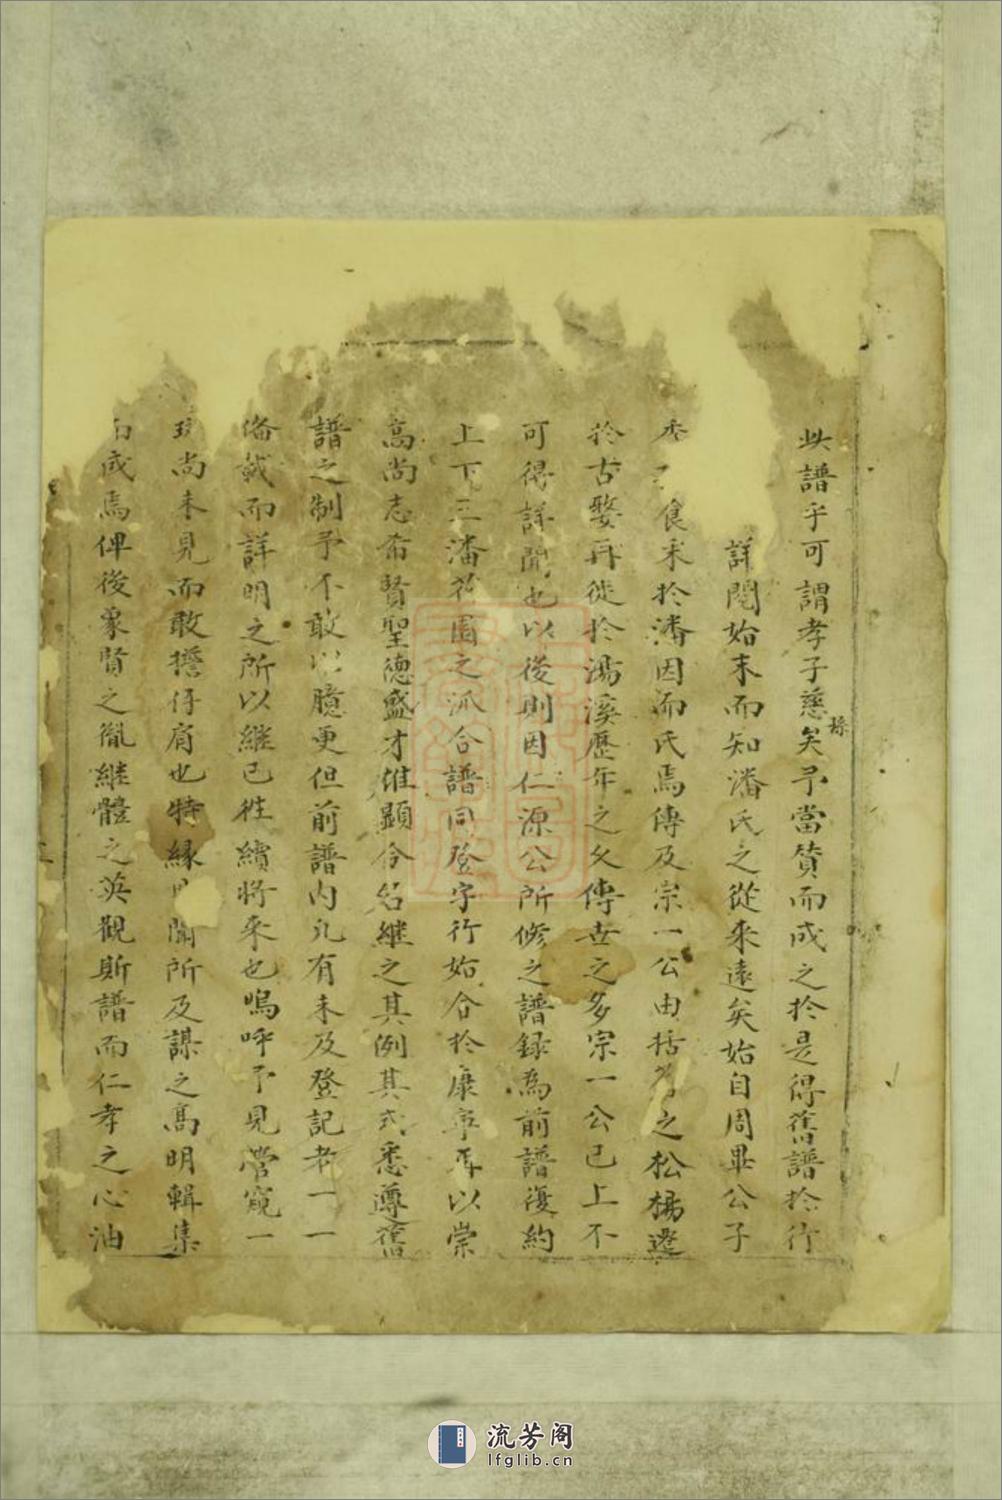 此譜乎可謂孝子慈孫矣予當贊而成之於是得舊譜於行
詳閱始末而知潘氏之從來遠矣始自周畢公子
季食采於潘因而氏焉傳及宗一公由括蒼之松楊遷
於古婺再徙於湯溪歷年之久傳世之多宗一公已上不
可得詳聞也以後則因仁源公所修之譜録為前譜復約
上下三潘花園之派合譜同登字行始合於康亭再以崇
高尚志希賢聖德盛才惟顯令名繼之其例其式悉遵舊
譜之制予不敢以臆更但前譜内凡有未及登記者一一
備載而詳明之所以繼已徃續將來也嗚呼予見管窺一
尚未見而敢擔仔肩也特縁聞所及謀之髙明輯集
而成焉俾後象賢之胤繼體之英觀斯譜而仁孝之心油
流芳阁
lfglib.cn